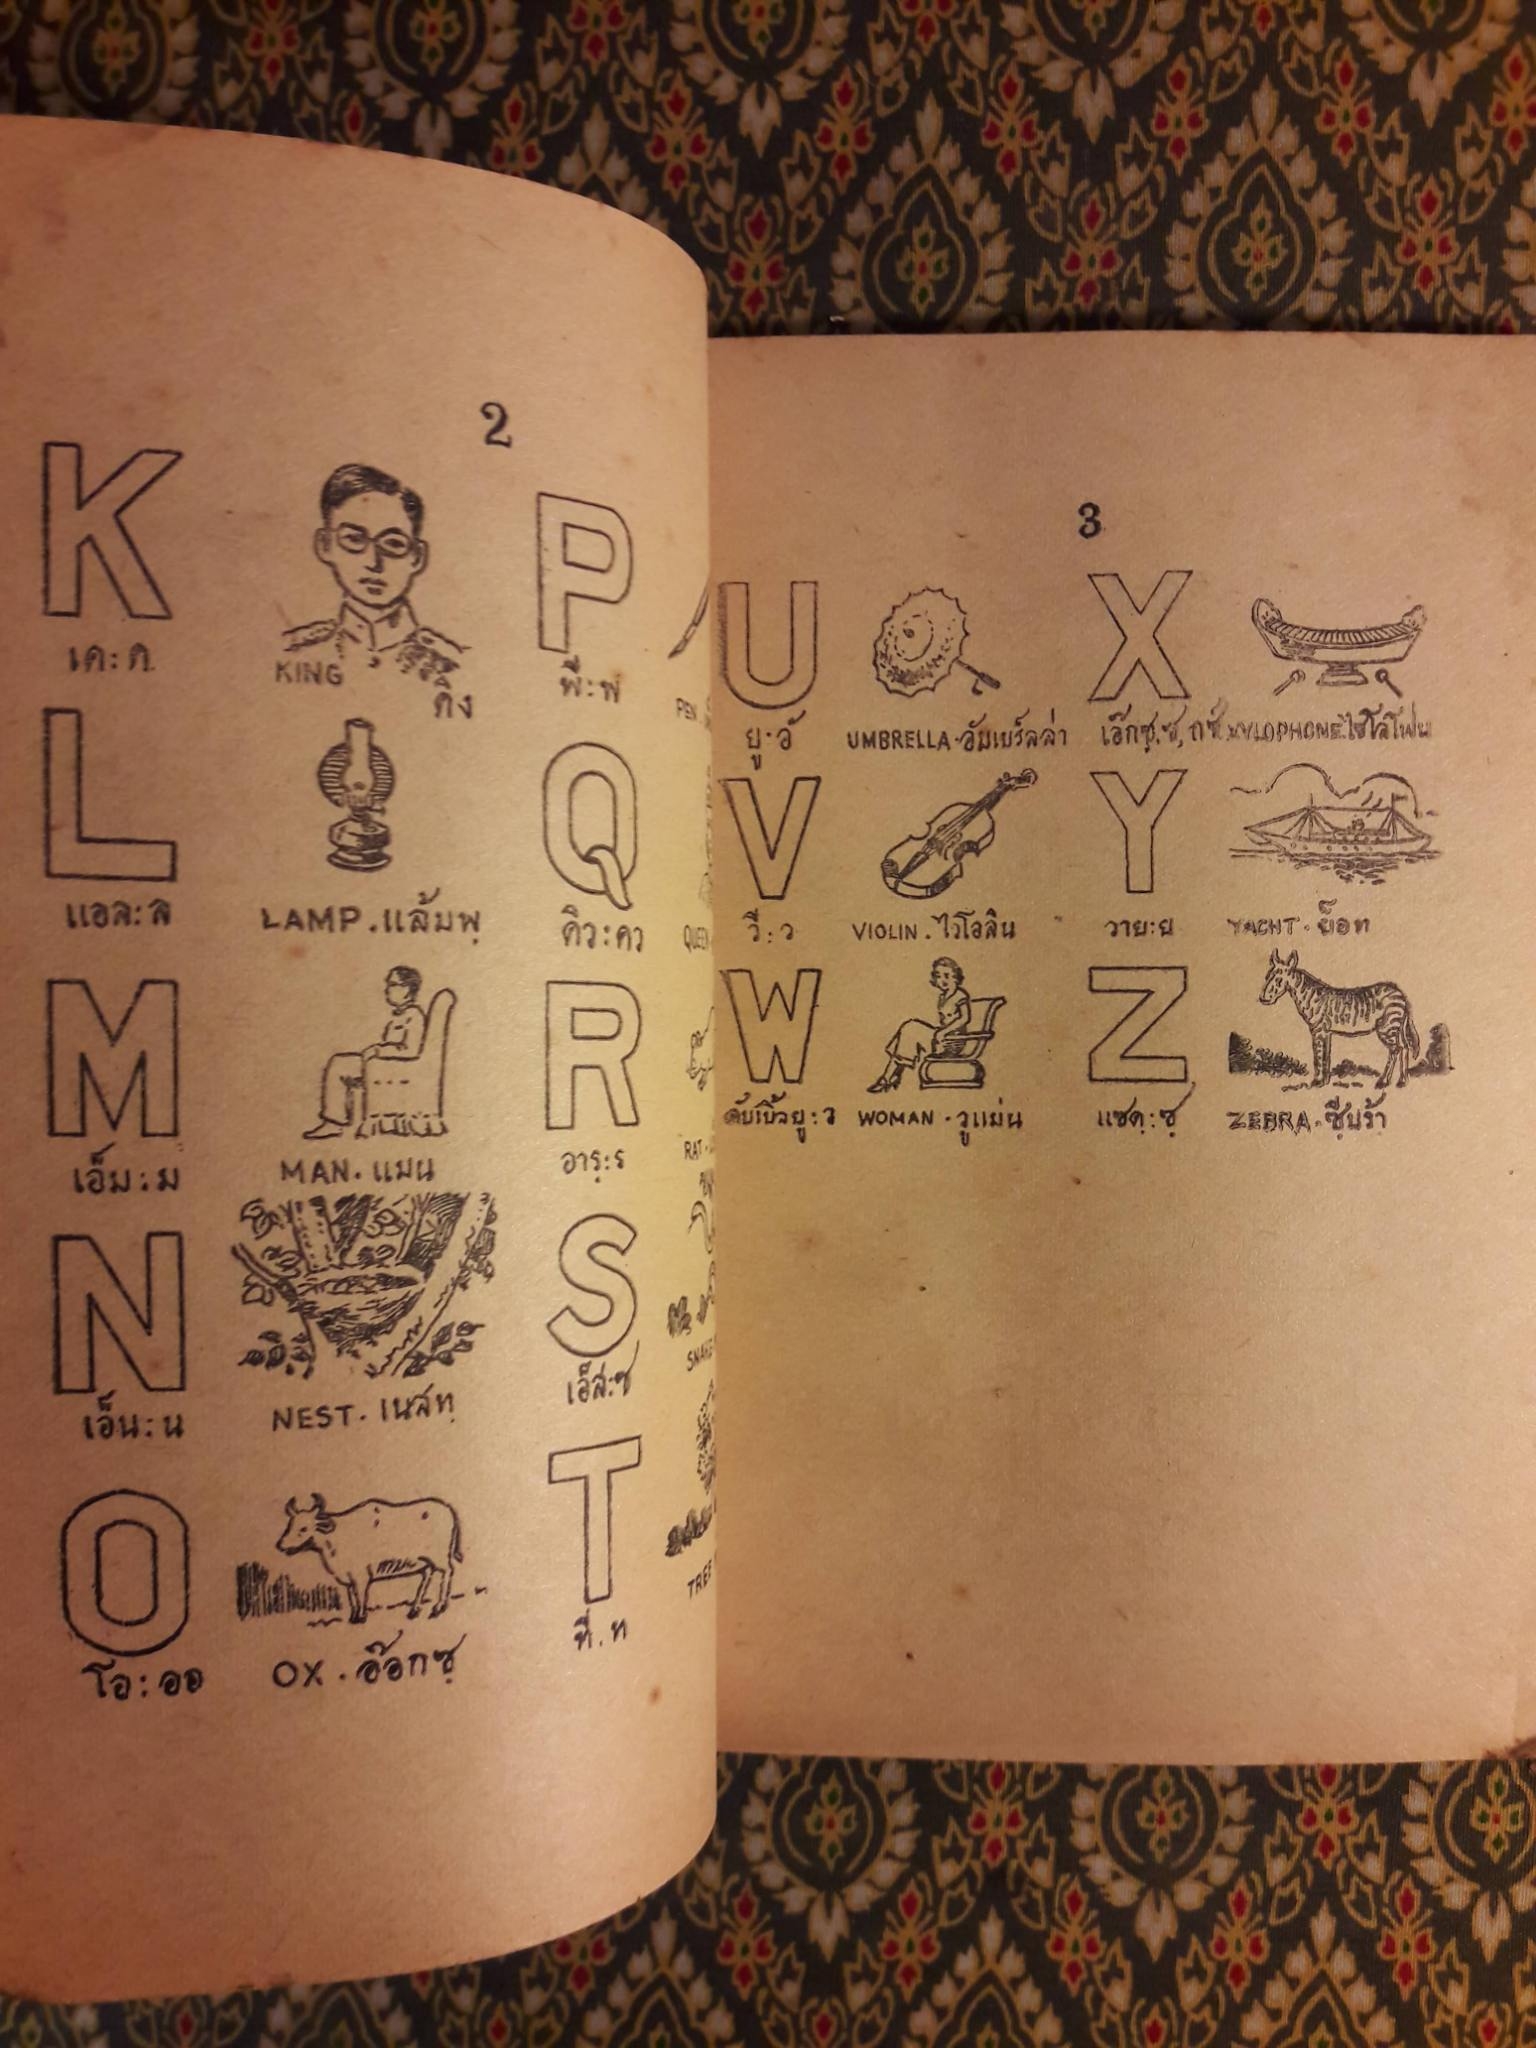 2
K
เค:ค
KING
คิง
P
พี:พ
PEN
L
แอล:ล
LAMP.แล้มพฺ
Q
คิว:คว
QUEEN
M
เอ็ม:ม
MAN.แมน
R
อารฺ:ร
RAT
N
เอ็น:น
NEST.เนสทฺ
S
เอ็ส:ซ
SNAKE
O
โอ:ออ
OX.อ๊อกซฺ
T
ที.ท
TREE
3
U
ยู.อั
UMBRELLA.อัมเบร์ลล่า
X
เอ๊กซฺ,ซ,กซฺ
XYLOPHONE.ไซโลโฟน
V
วี:ว
VIOLIN.ไวโอลิน
Y
วาย:ย
YACHT.ย็อท
W
ดับเบิ้ลยู:ว
WOMAN.วูแม่น
Z
แซดฺ:ซฺ
ZEBRA.ซีบร้า